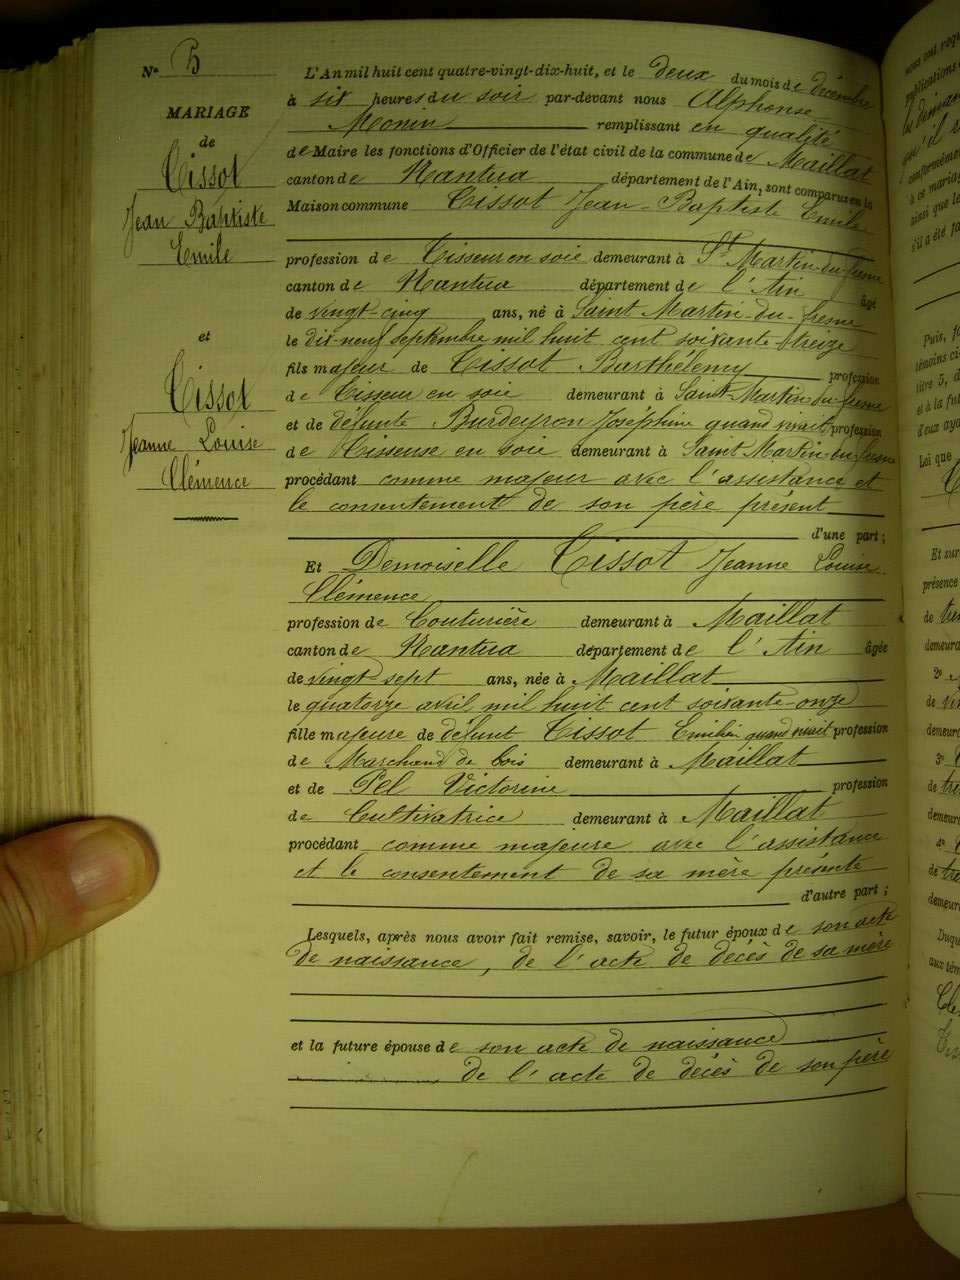 N° 5
MARIAGE
de
Tissot
Jean Baptiste
Emile
et
Tissot
Jeanne Louise
Clémence
L'An mil huit cent quatre-vingt-dix-huit, et le deux du mois de décembre
à six heures du soir par-devant nous Alphonse
Monin remplissant en qualité
de Maire les fonctions d'Officier de l'état civil de la commune de Maillat
canton de Nantua département de l'Ain, sont comparus en la
Maison commune Tissot Jean-Baptiste Emile
profession de Tisseur en soie demeurant à St Martin-du-fresne
canton de Nantua département de l'Ain âgé
de vingt-cinq ans, né à Saint Martin-du-fresne
le dix-neuf septembre mil huit cent soixante-treize
fils majeur de Tissot Barthélemy profession
de Tisseur en soie demeurant à Saint-Martin-du-fresne
et de défunte Burdeyron Joséphine quand vivait profession
de Tisseuse en soie demeurant à Saint Martin-du-fresne
procédant comme majeur avec l'assistance et
le consentement de son père présent
d'une part;
Et Demoiselle Tissot Jeanne Louise
Clémence
profession de Couturière demeurant à Maillat
canton de Nantua département de l'Ain âgée
de vingt sept ans, née à Maillat
le quatorze avril mil huit cent soixante-onze
fille majeure de défunt Tissot Emilien quand vivait profession
de Marchand de bois demeurant à Maillat
et de Pel Victorine profession
de Cultivatrice demeurant à Maillat
procédant comme majeure avec l'assistance
et le consentement de sa mère présente
d'autre part;
Lesquels, après nous avoir fait remise, savoir, le futur époux de son acte
de naissance, de l'acte de décès de sa mère
et la future épouse de son acte de naissance
de l'acte de décès de son père